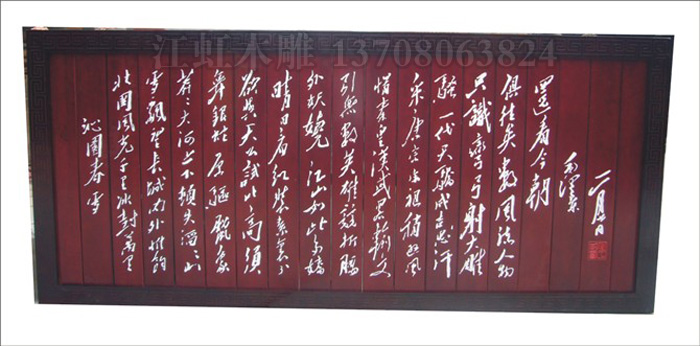 江虹木雕 13708063824
沁園春雪
北國風光千里冰封萬里
雪飄望長城內外惟餘
莽〻大河上下頓失滔〻山
舞銀蛇原驅臘象
欲與天公試比高須
晴日看紅裝素裹分
外妖嬈 江山如此多嬌
引無數英雄競折腰
惜秦皇漢武略輸文
采唐宗宋祖稍遜風
騷一代天驕成吉思汗
只識彎弓射大雕
俱往矣數風流人物
還看今朝
毛澤東